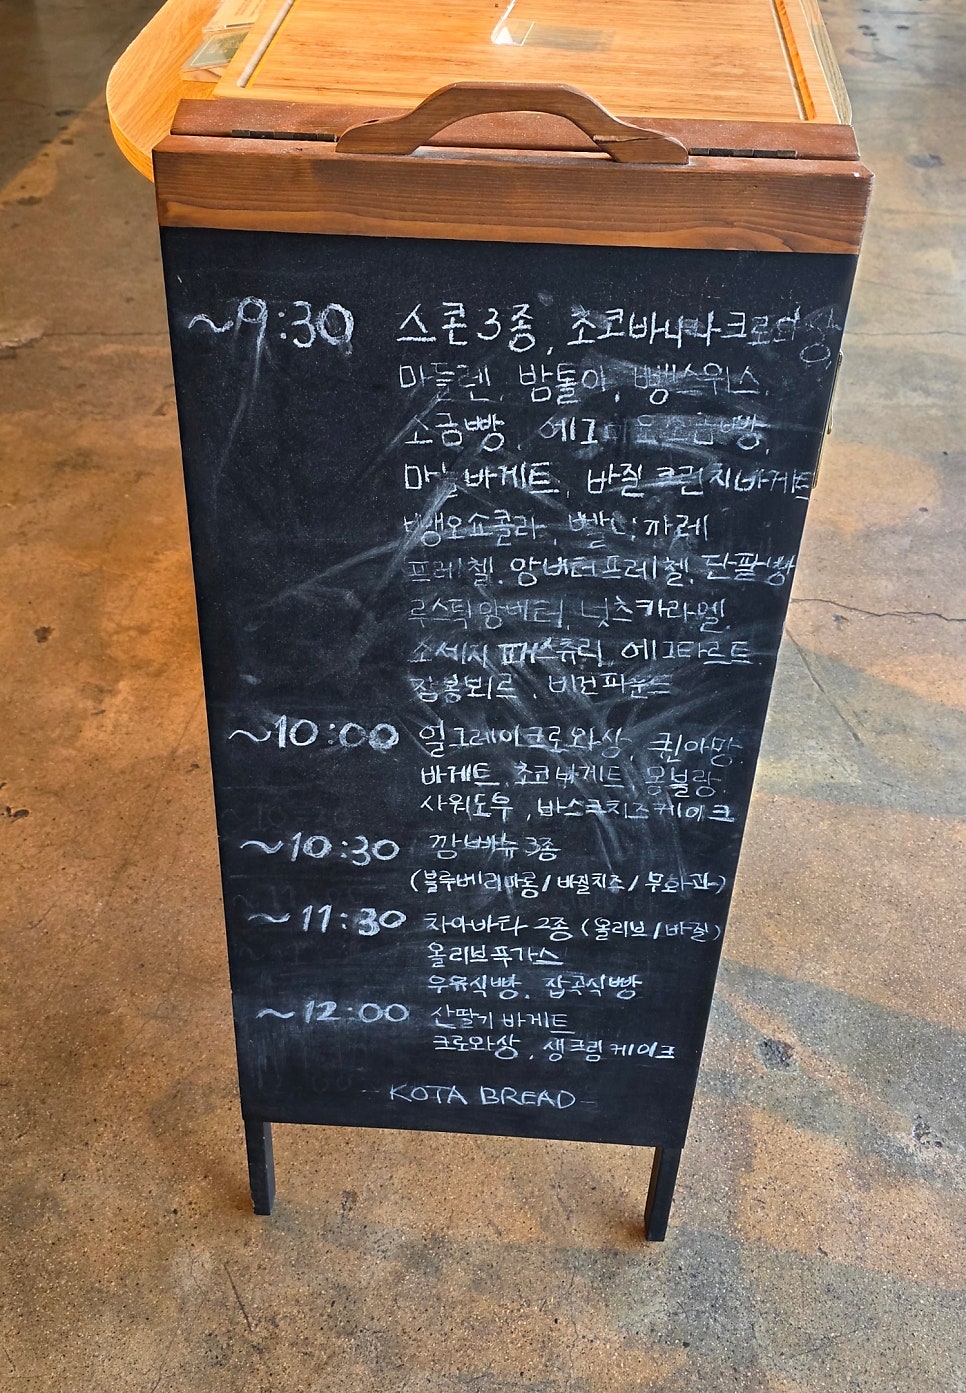 ~9:30 스콘3종, 초코바나나크로와상
마들렌, 밤톨이, 뺑스위스,
소금빵, 에그마요소금빵,
마늘바게트, 바질크런치바게트
뺑오쇼콜라, 빨미까레
프레첼, 앙버터프레첼, 단팥빵
루스틱앙버터, 넛츠카라멜,
소세지 패스츄리, 에그타르트,
잠봉뵈르, 비건파운드
~10:00 얼그레이크로와상, 퀸아망,
바게트, 초코바게트, 몽블랑,
사워도우, 바스크치즈케이크
~10:30 깜빠뉴 3종
(블루베리마롱/바질치즈/무화과)
~11:30 차아바타 2종 (올리브/바질)
올리브푸가스
우유식빵, 잡곡식빵
~12:00 산딸기바게트
크로와상, 생크림케이크
- KOTA BREAD -